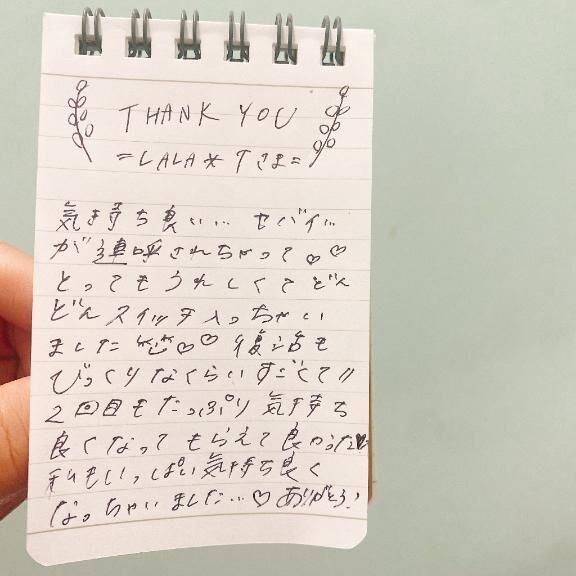 THANK YOU
=LALA* Tさま=
気持ち良い… セバイ…
が連呼されちゃって♡♡
とってもうれしくてどん
どんスイッチ入っちゃい
ました♡♡ 復活も
びっくりなくらいすごくて!!
2回目もたっぷり気持ち
良くなってもらえて良かった♥
私もいっぱい気持ち良く
なっちゃいました…♡ありがとう!